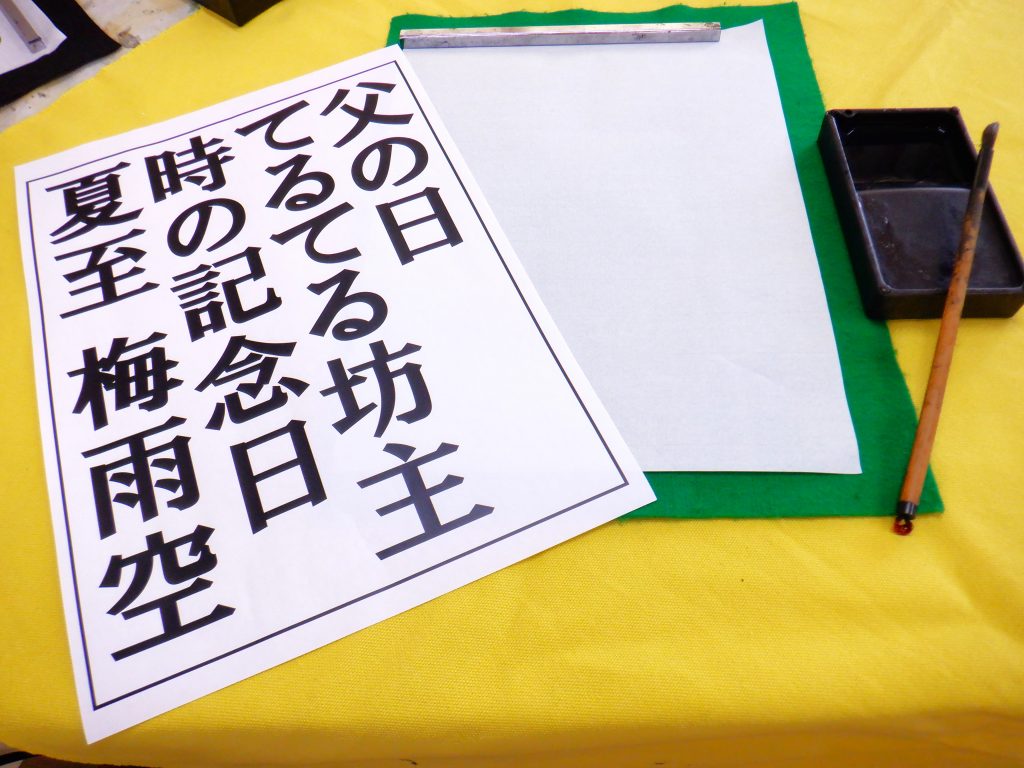 父の日
てるてる坊主
時の記念日
夏至 梅雨空